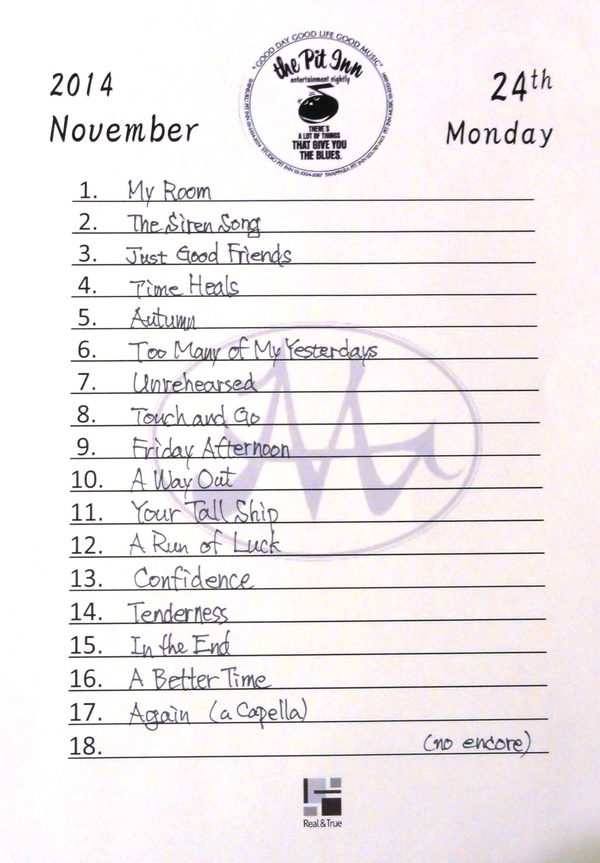 "GOOD DAY GOOD LIFE GOOD MUSIC"
the Pit Inn
entertainment nightly
THERE'S
A LOT OF THINGS
THAT GIVE YOU
THE BLUES.
2014
November
24th
Monday
1. My Room
2. The Siren Song
3. Just Good Friends
4. Time Heals
5. Autumn
6. Too Many of My Yesterdays
7. Unrehearsed
8. Touch and Go
9. Friday Afternoon
10. A Way Out
11. Your Tall Ship
12. A Run of Luck
13. Confidence
14. Tenderness
15. In the End
16. A Better Time
17. Again (a Capella)
18. (no encore)
Real&True